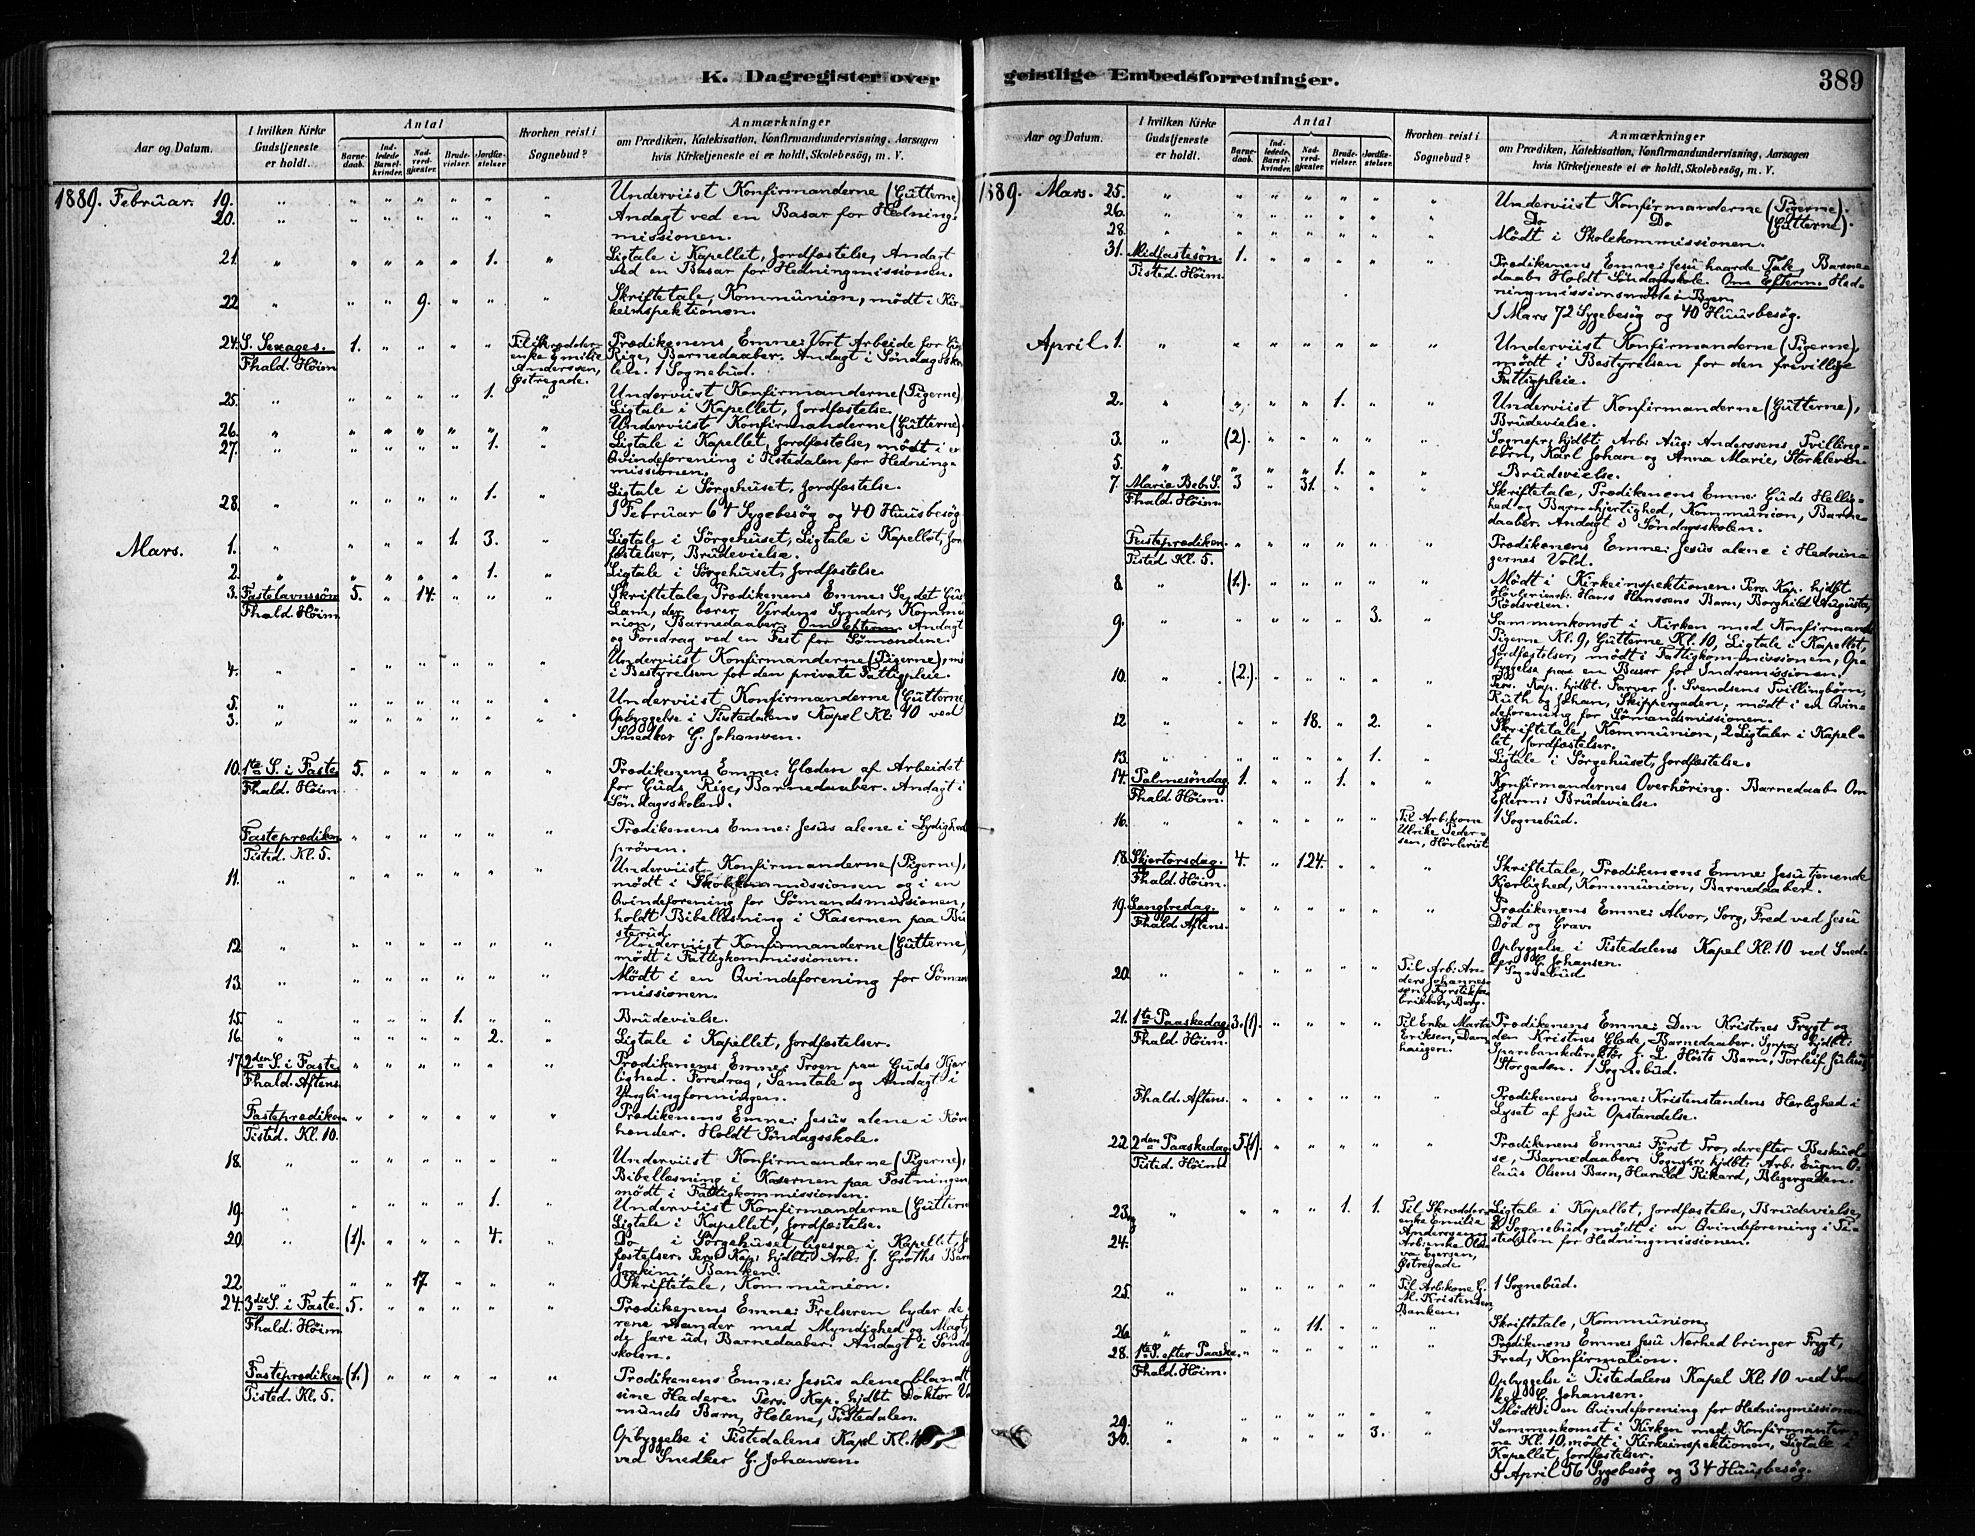 K. Dagregister over
Aar og Datum.
I hvilken Kirke Gudstjeneste er holdt.
Antal
Barnedaab.
Indledede Barselkvinder.
Nadverdgjester.
Brudevielser.
Jordfæstelser.
Hvorhen reist i Sognebud?
Anmærkninger
om Prædiken, Katekisation, Konfirmandundervisning, Aarsagen
hvis Kirketjeneste ei er holdt, Skolebesøg, m. V.
1889. Februar. 19. " " " " " " " Underviist Konfirmanderne (Gutterne)
20. " " " " " " " Andagt ved en Basar for Hedning-
missionen.
21. " " " " " 1. " Ligtale i Kapellet, Jordfæstelse, Andagt
ved en Basar for Hedningmissionen.
22 " " " 9. " " " Skriftetale, Kommunion, mødt i Kir-
keinspektionen.
24. S. Sexages. 1. " " " " Til Skrædder- Prædikenens Emne: Vort Arbeide for Guds
Fhald. Höim enke Emilie Rige, Barnedaaber. Andagt i Søndagssko-
Anderssen, len. 1 Sognebud.
Østregade.
25. " " " " " 1. " Underviist Konfirmanderne (Pigerne),
Ligtale i Kapellet, Jordfæstelse.
26. " " " " " " " Underviist Konfirmanderne (Gutterne)
27. " " " " " 1. " Ligtale i Kapellet, Jordfæstelse, mødt i en
Qvindeforening i Tistedalen for Hedning-
missionen.
28. " " " " " 1. " Ligtale i Sørgehuset, Jordfæstelse.
I Februar 64 Sygebesøg og 40 Huusbesøg
Mars. 1. " " " " 1. 3. " Ligtale i Sørgehuset, Ligtale i Kapellet, Jord-
fæstelser, Brudevielse.
2. " " " " " 1. " Ligtale i Sørgehuset, Jordfæstelse.
3. Fastelavnssøn 5. " 14. " " " Skriftetale, Prædikenens Emne: Se, det Guds
Fhald. Höim. Lam, der bærer Verdens Synder, Kommu-
nion, Barnedaaber. Om Efterm. Andagt
og Foredrag ved en Fest for Sømændene.
4. " " " " " " " Underviist Konfirmanderne (Pigerne), mødt
i Bestyrelsen for den private Fattigpleie.
5. " " " " " " " Underviist Konfirmanderne (Gutterne
3. " " " " " " " Opbyggelse i Tistedalens Kapel Kl. 10 ved
Snedker G. Johansen.
10. 1ste S. i Faste 5. " " " " " Prædikenens Emne: Glæden af Arbeidet
Fhald. Höim. for Guds Rige, Barnedaaber. Andagt i
Søndagsskolen.
Fasteprædiken " " " " " " Prædikenens Emne: Jesus alene i Lydigheds
Tisted. Kl. 5. prøven.
11. " " " " " " " Underviist Konfirmanderne (Pigerne),
mødt i Skolekommissionen og i en
Qvindeforening for Sømandsmissionen,
holdt Bibellæsning i Kasernen paa Bu
sterud.
12. " " " " " " " Underviist Konfirmanderne (Gutterne)
mødt i Fattigkommissionen.
13. " " " " " " " Mødt i en Qvindeforening for Sømands
missionen.
15. " " " " 1. " " Brudevielse.
16. " " " " " 2. " Ligtale i Kapellet, Jordfæstelser.
17. 2den S. i Faste " " " " " " Prædikenens Emne: Troen paa Guds Kjær-
Fhald. Aftens. lighed. Foredrag, Samtale og Andagt i
Ynglingforeningen.
Fasteprædiken " " " " " " Prædikenens Emne: Jesus alene i Røver-
Tisted. Kl. 10. hænder. Holdt Søndagsskole.
18. " " " " " " " Underviist Konfirmanderne (Pigerne),
Bibellæsning i Kasernen paa Fæstningen,
mødt i Fattigkommissionen.
19. " " " " " 1. " Underviist Konfirmanderne (Gutterne
Ligtale i Kapellet, Jordfæstelse.
20. " (1). " " " 4. " Do i Sørgehuset, ligesaa i Kapellet, Jord-
fæstelser. Pers. Kap. hjdbt. Arb. J. Groths Barn
Joakim, Banken.
22. " " " 17. " " " Skriftetale, Kommunion.
24. 3die S. i Faste. 5. " " " " " Prædikenens Emne: Frelseren byder de
Fhald. Höim rene Aander med Myndighed og Magt,
de fare ud, Barnedaaber. Andagt i Søndags
skolen.
Fasteprædiken (1.) " " " " " Prædikenens Emne: Jesus alene blandt
Tisted. Kl. 5. sine Hadere. Pers. Kap. hjdbt. Doktor
munds Barn, Helene, Tistedalen.
Opbyggelse i Tistedalens Kapel Kl. 10
ved Snedker G. Johansen.
geistlige Embedsforretninger.
389
Aar og Datum.
I hvilken Kirke Gudstjeneste er holdt.
Antal
Barnedaab.
Indledede Barselkvinder.
Nadverdgjester.
Brudevielser.
Jordfæstelser.
Hvorhen reist i Sognebud?
Anmærkninger
om Prædiken, Katekisation, Konfirmandundervisning, Aarsagen
hvis Kirketjeneste ei er holdt, Skolebesøg, m. V.
1889. Mars. 25. " " " " " " " Underviist Konfirmanderne (Pigerne).
26. " " " " " " " Do Do (Gutterne).
28. " " " " " " " Mødt i Skolekommissionen.
31. Midfastesøn. 1. " " " " " Prædikenens Emne: Jesu haarde Tale, Barne-
Tisted. Höim. daab. Holdt Søndagsskole. Om Efterm. Hed-
ningmissionsmøde i Byen.
I Mars 72 Sygebesøg og 40 Huusbesøg.
April. 1. " " " " " " " Underviist Konfirmanderne (Pigerne),
mødt i Bestyrelsen for den frivillige
Fattigpleie.
2. " " " " 1. " " Underviist Konfirmanderne (Gutterne),
Brudevielse.
3. " (2). " " " " " Sognepr. hjdbt. Arb. Aug. Anderssens Tvilling-
børn, Karl Johan og Anna Marie, Storkleven.
5. " " " " 1. " " Brudevielse.
7. Maria Beb. S. 3 " 31. " " " Skriftetale, Prædikenens Emne: Guds Hellig-
Fhald. Höim. hed og Barmhjertighed, Kommunion, Barne-
daaber. Andagt i Søndagsskolen.
Fasteprædiken. " " " " " " Prædikenens Emne: Jesus alene i Hednin-
Tisted Kl. 5. gernes Vold.
8. " (1.) " " " " " Mødt i Kirkeinspektionen. Pers. Kap. hjdbt
Høvleriarb. Hans Hanssens Barn, Borghild Augusta,
Rødsveien.
9. " " " " " 3. " Sammenkomst i Kirken med Konfirmand.
Pigerne Kl. 9, Gutterne Kl. 10, Ligtale i Kapellet,
Jordfæstelser, mødt i Fattigkommissionen, Op-
byggelse paa en Basar for Indremissionen.
10. " (2.) " " " " " Pers. Kap. hjdbt. Farver J. Svendsens Tvillingbørn,
Ruth og Johan, Skippergaden; mødt i en Qvin-
deforening for Sømandsmissionen.
12 " " " 18. " 2. " Skriftetale, Kommunion, 2 Ligtaler i Kapel-
let, Jordfæstelser.
13. " " " " " 1. " Ligtale i Sørgehuset, Jordfæstelse.
14. Palmesøndag 1. " " 1. " " Konfirmandernes Overhøring. Barnedaab. Om
Fhald. Höim. Efterm: Brudevielse.
16. " " " " " " Til Arb.kone 1 Sognebud.
Ulrike Peder-
sen, Høvleriet.
18. Skjærtorsdag. 4. " 124. " " " Skriftetale, Prædikenens Emne: Jesu tjenende
Fhald. Höim. Kjærlighed, Kommunion, Barnedaaber.
19. Langfredag. " " " " " " Prædikenens Emne: Alvor, Sorg, Fred ved Jesu
Fhald. Aftens. Død og Grav.
Opbyggelse i Tistedalens Kapel Kl. 10 ved Sned-
ker G. Johansen.
20. " " " " " " Til Arb: An- 1 Sognebud
ders Johannes-
sen, Fyrstikfa-
brikken, Berg.
21. 1ste Paaskedag. 3. (1). " " " " Til Enke Marte Prædikenens Emne: Den Kristnes Frygt og
Fhald. Höim. Eriksen, Dam- den Kristnes Glæde, Barnedaaber. Sognepr. hjdbt:
haugen. Sparebankdirektør J. L. Høsts Barn, Torleif Julius,
Storgaden. 1 Sognebud.
Fhald. Aftens. " " " " " " Prædikenens Emne: Kristenstandens Herlighed i
Lyset af Jesu Opstandelse.
22. 2den Paaskedag 5 (1). " " " " " Prædikenens Emne: Først Tro, derefter Beskuel-
Tisted. Höim. se, Barnedaaber. Sognepr. hjdbt. Arb. Eugen O-
laus Olsens Barn, Harald Rikard, Blegergaden.
23. og " " " " 1. 1. Til Skrædder- Ligtale i Kapellet, Jordfæstelse, Brudevielse,
24. enke Emilie 2 Sognebud, mødt i en Qvindeforening i Ti-
Anderssen, stedalen for Hedningmissionen.
Arb:enke
Østregade
25. " " " " " " Til Arb.kone G. 1 Sognebud.
M. Kristensen,
Banken.
26. " " " 11. " " " Skriftetale, Kommunion
28. 1ste S. efter Paaske. " " " " " " Prædikenens Emne: Jesu Nærhed bringer Frygt,
Fhald. Höim. Fred, Konfirmation.
Opbyggelse i Tistedalens Kapel Kl. 10 ved Sned-
ker G. Johansen.
29. " " " " " " " Mødt i en Qvindeforening for Hedningmissionen
30. " " " " " 3. " Sammenkomst i Kirken med Konfirmanter-
ne Kl. 10, mødt i Kirkeinspektionen, Ligtale i
Kapellet, Jordfæstelser.
I April 56 Sygebesøg og 34 Huusbesøg.